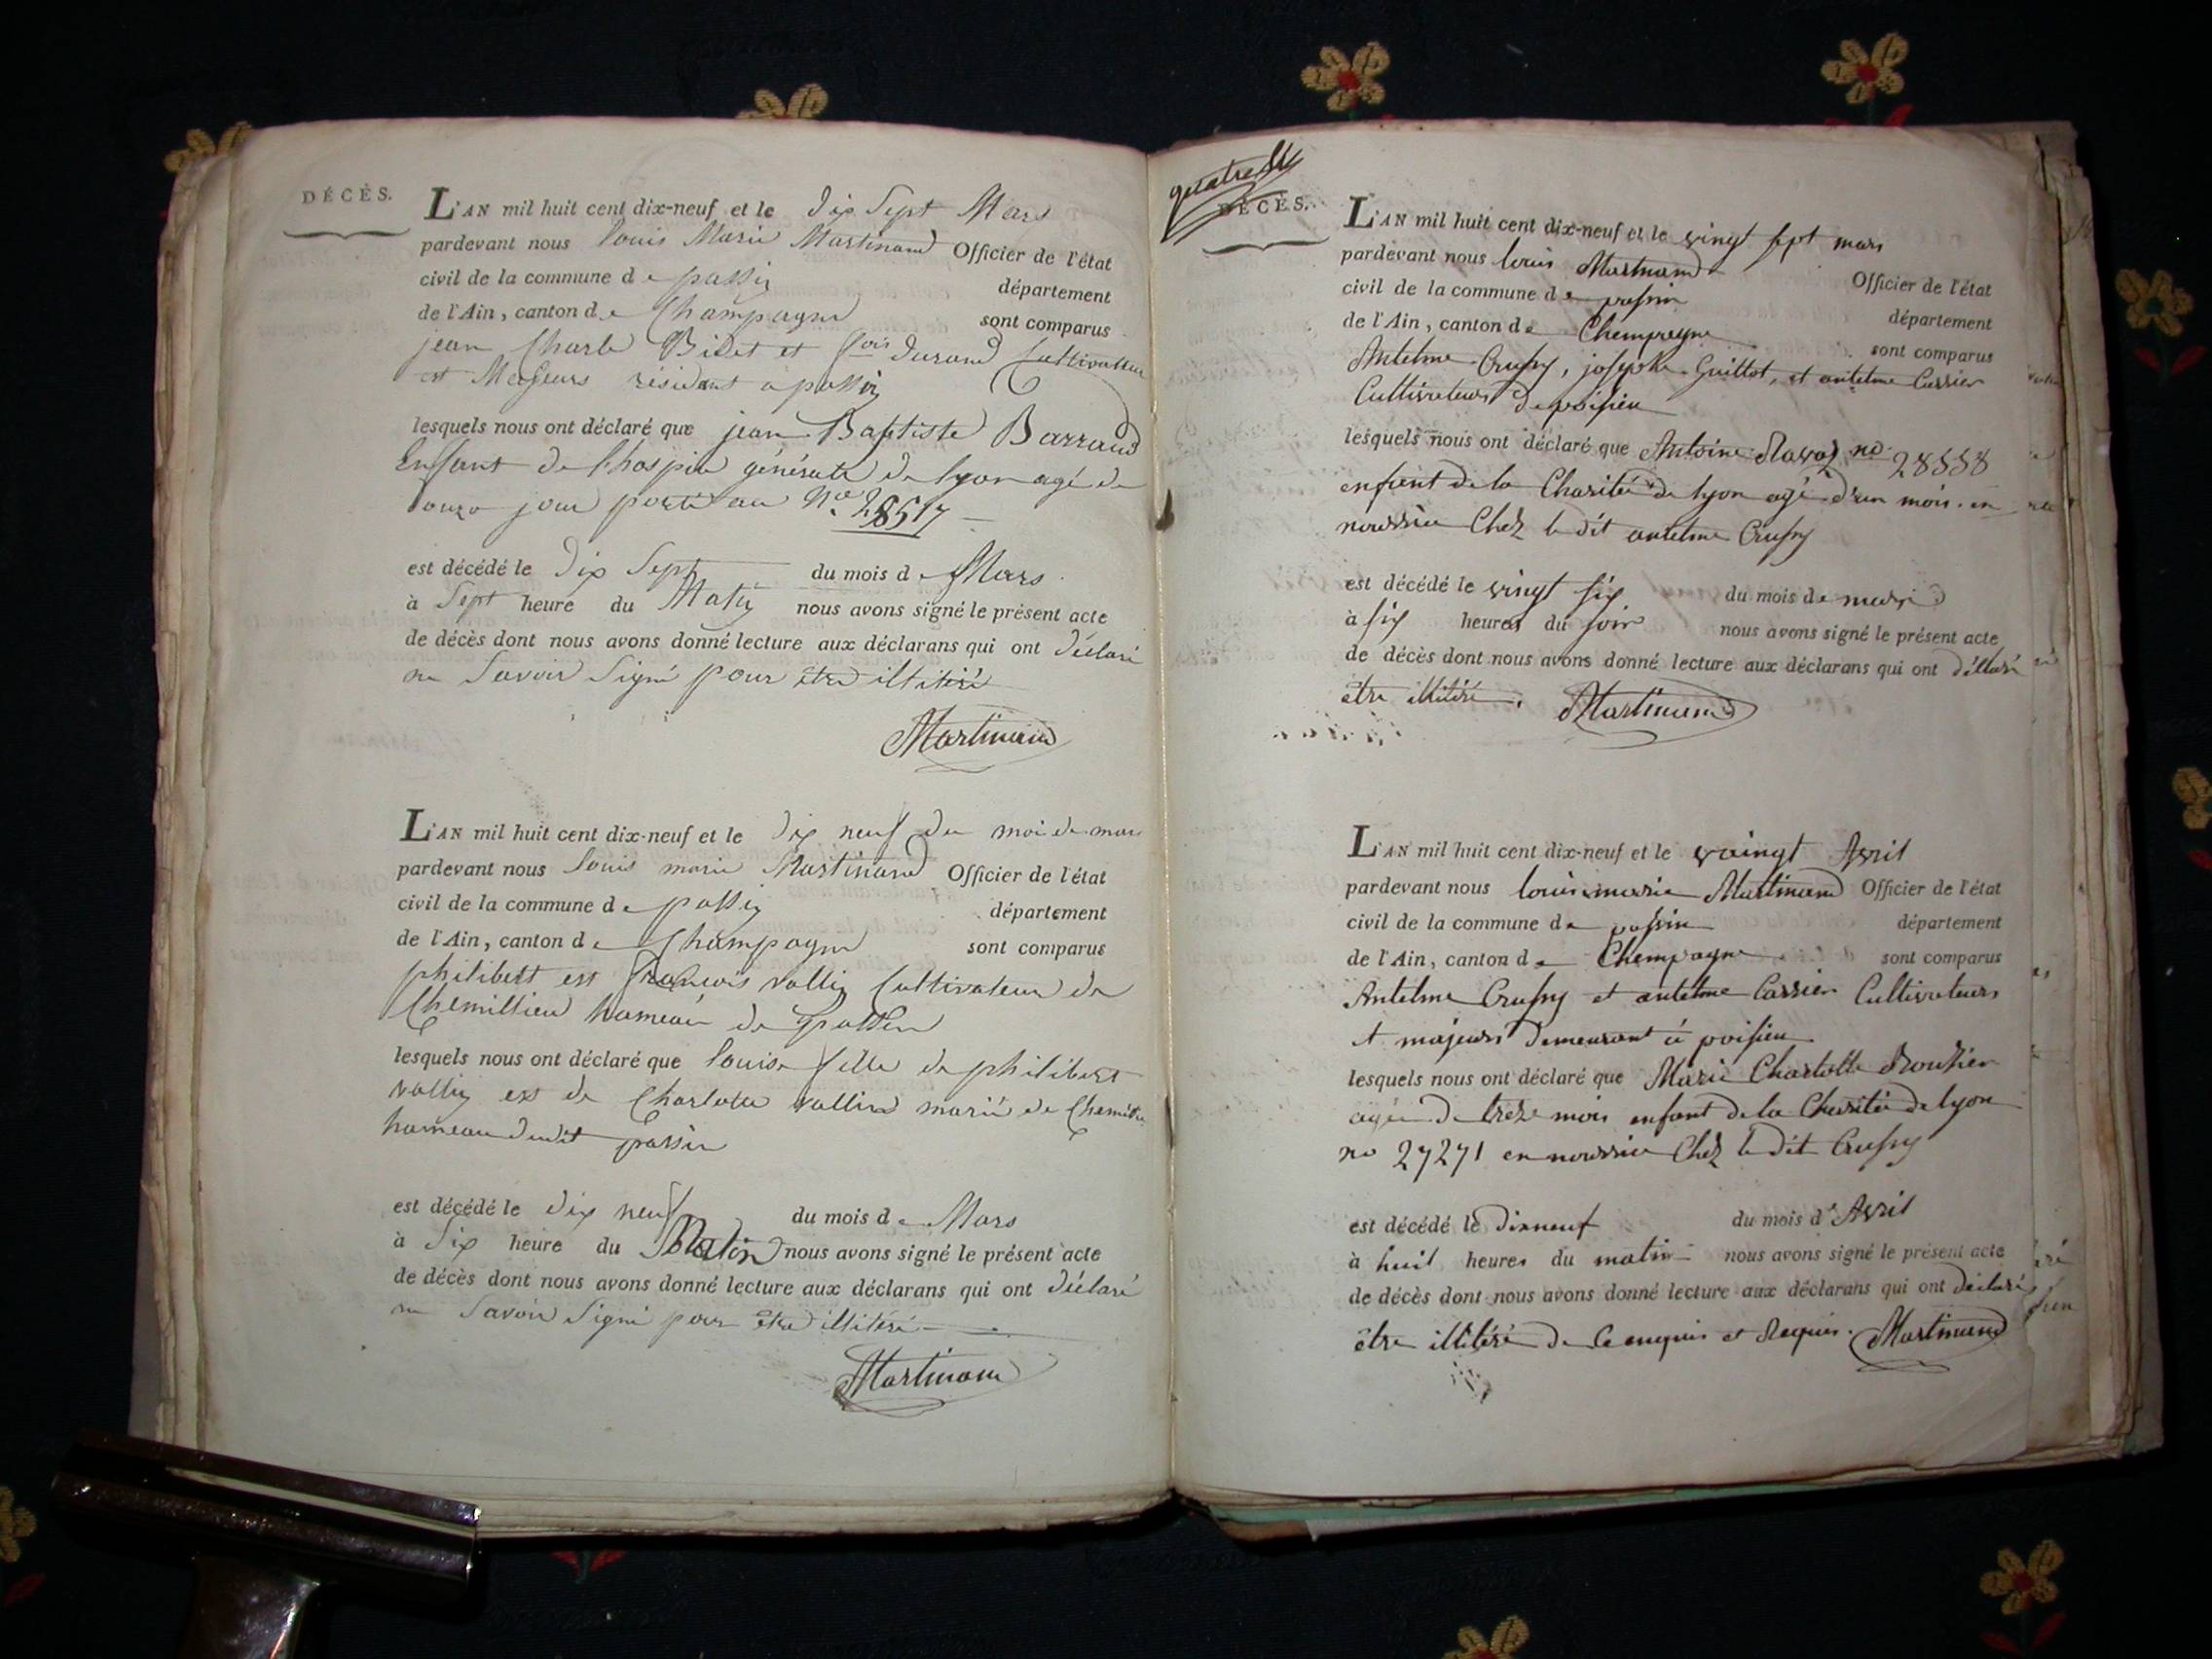 DÉCÈS.
L'AN mil huit cent dix-neuf et le dix Sept Mars
pardevant nous louis Marie Martinand Officier de l'état
civil de la commune de passin département
de l'Ain, canton de Champagne sont comparus
jean Charle Bidet et fois durand Cultivateur
et Majeurs résidant a passin
lesquels nous ont déclaré que jean Baptiste Barraud
Enffant de l'hospice générale de lyon agé de
jour porté au No 28517
est décédé le dix Sept du mois de Mars
à Sept heure du Matin nous avons signé le présent acte
de décès dont nous avons donné lecture aux déclarans qui ont déclaré
ne Savoir Signé pour être illitéré
Martinand
L'AN mil huit cent dix-neuf et le dix neuf du moi de mars
pardevant nous louis marie Martinand Officier de l'état
civil de la commune de passin département
de l'Ain, canton de Champagne sont comparus
philibert est francois vallin Cultivateur de
Chemillieu hameau de passin
lesquels nous ont déclaré que louise fille de philibert
vallin est de Charlotte vallin marié de
hameau dudit passin
est décédé le dix neuf du mois de Mars
à Six heure du Matin nous avons signé le présent acte
de décès dont nous avons donné lecture aux déclarans qui ont déclaré
ne Savoir Signé pour être illitéré
Martinand
quatre
DÉCÈS.
L'AN mil huit cent dix-neuf et le vingt sept mars
pardevant nous louis Martinand Officier de l'état
civil de la commune de passin département
de l'Ain, canton de Champagne sont comparus
Antelme Crussy, josephe Guillot, et antelme Carrier
Cultivateurs de poisieu
lesquels nous ont déclaré que Antoine no 28558
enfant de la Charité de lyon agé d'un mois en
nourrice Chez le dit antelme Crussy
est décédé le vingt six du mois de mars
à six heures du soir nous avons signé le présent acte
de décès dont nous avons donné lecture aux déclarans qui ont déllaré
être illitéré. Martinand
L'AN mil huit cent dix-neuf et le vaingt Avril
pardevant nous louis marie Martinand Officier de l'état
civil de la commune de passin département
de l'Ain, canton de Champagne sont comparus
Antelme Crussy et antelme Carrier Cultivateurs
et majeurs demeurant à poisieu
lesquels nous ont déclaré que Marie Charlotte Routier
agée de treze mois enfant de la Charité de lyon
no 27271 en nourrice Chez le dit Crussy
est décédé le dixneuf du mois d'Avril
à huit heures du matin nous avons signé le présent acte
de décès dont nous avons donné lecture aux déclarans qui ont déclaré
être illitéré de Ce enquis et Requis. Martinand